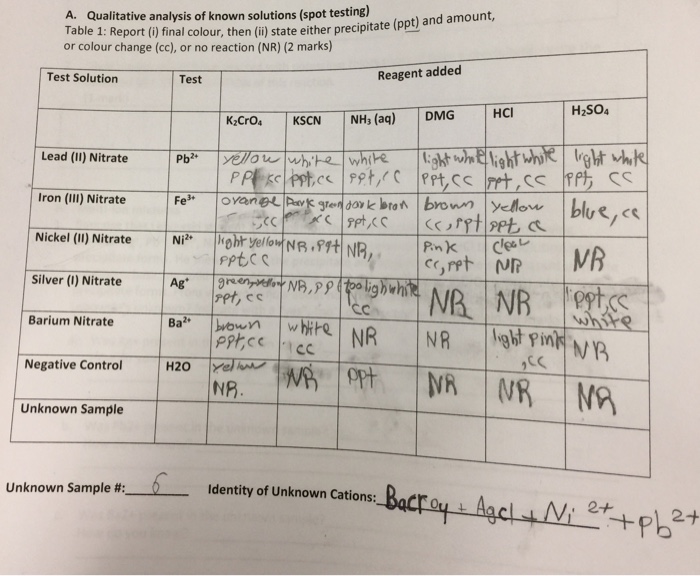 A. Qualitative analysis of known solutions (spot testing)
Table 1: Report (i) final colour, then (ii) state either precipitate (ppt) and amount,
or colour change (cc), or no reaction (NR) (2 marks)
Test Solution Test Reagent added
K₂CrO₄ KSCN NH₃ (aq) DMG HCl H₂SO₄
Lead (II) Nitrate Pb²⁺ yellow white white light white light white light white
ppt, cc ppt,cc ppt, cc ppt, cc ppt, cc
Iron (III) Nitrate Fe³⁺ orange Dark green dark bron brown yellow blue, cc
,cc cc ppt,cc cc, ppt ppt, cc
Nickel (II) Nitrate Ni²⁺ light yellow NR, ppt NR, Pink clear NR
ppt cc cc, ppt NR
Silver (I) Nitrate Ag⁺ NR, pp white NR NR ppt,cc
ppt, cc cc white
Barium Nitrate Ba²⁺ brown white NR NR light pink NR
ppt,cc cc ,cc
Negative Control H2O yellow NR ppt NR NR NR
NR.
Unknown Sample
Unknown Sample #: 6 Identity of Unknown Cations: Bacroy + Agcl + Ni ²⁺ + pb²⁺